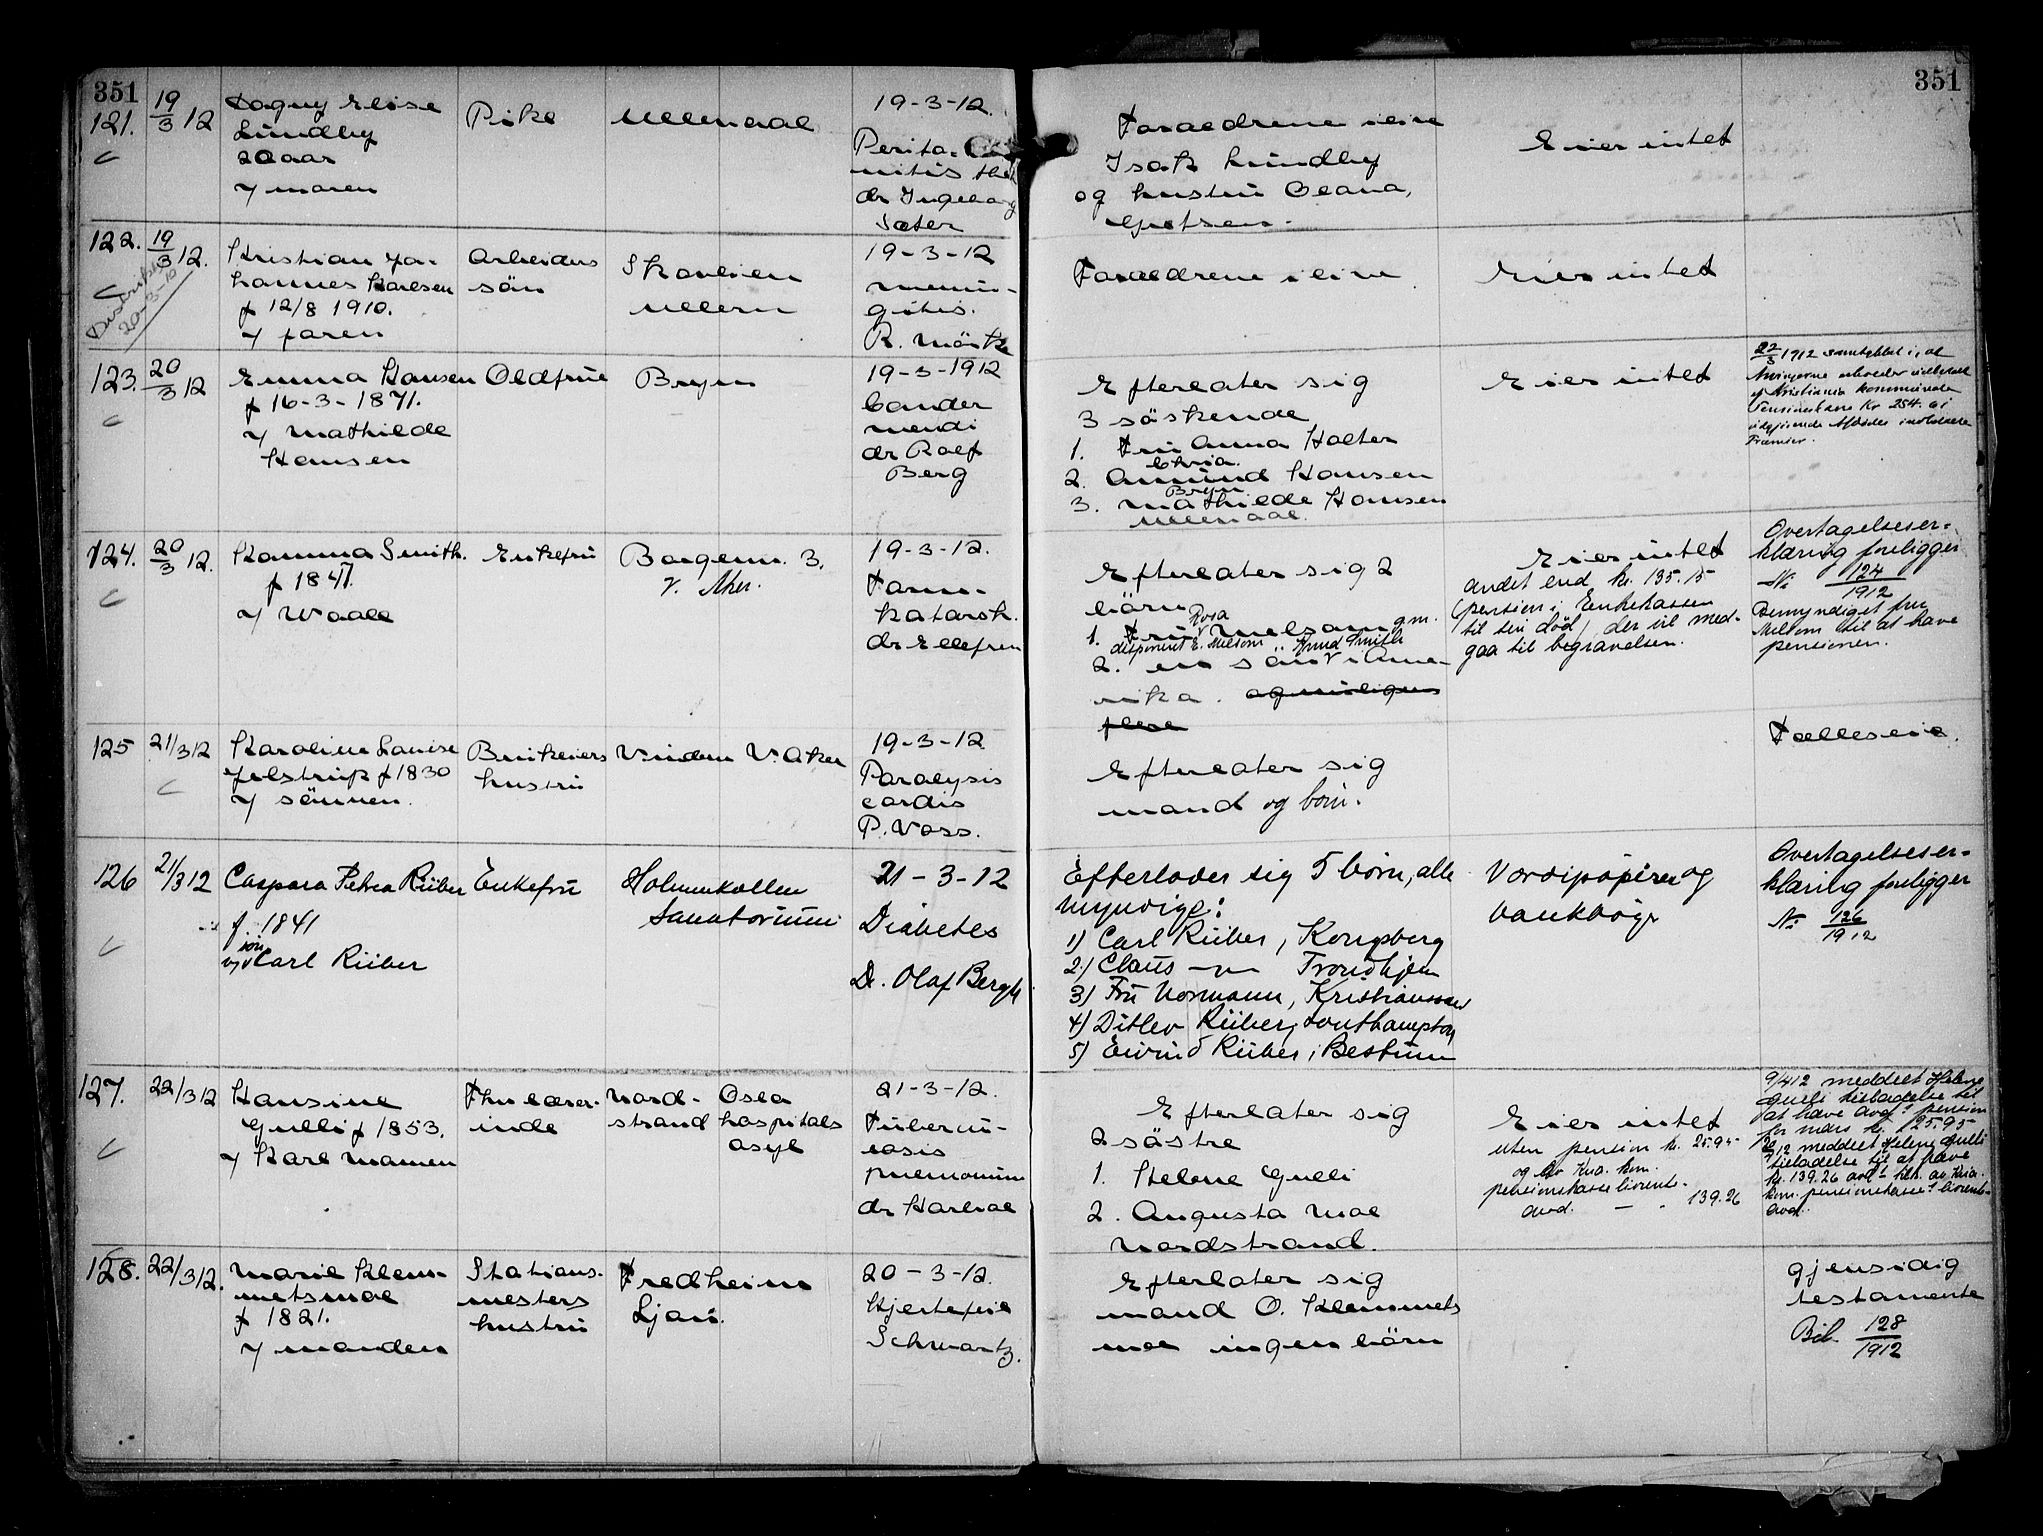 351
351
121.
19/3 12
Dagny Elise
Lundby
20 aar
v/ moren
Pike
Ullevaal
19-3-12.
Perito-
nitis
dr Ingeborg
Sæter
Foraeldrene i live
Isak Lundby
og hustru
Eier intet
122.
19/3 12.
20-3-12
Kristian Jo-
hannes Karlsen
f 12/8 1910.
v/ faren
Arbeiders
sön
Skovlien
Ullern
19-3-12
menin-
gitis.
R. Mörk
Foraeldrene i live
Eier intet
123.
20/3 12
Emma Hansen
f 16-3-1871.
v/ Mathilde
Hansen
Oldfrue
Bryn
19-3-1912
Cancer
mendi
dr Rolf
Berg
Efterlater sig
3 söskende
1. Fru Anna Holter
Chria.
2. Amund Hansen
Bryn
3. Mathilde Hansen
Ullevaal.
Eier intet
22/3 1912 samtykket i, at
Kristiania kommunale
Pensionskasse Kr 254.61
Præmier.
124.
20/3 12.
Hamma Smith.
f 1847.
v/ Waale
Enkefru
Borgenv. 3.
V. Aker.
19-3-12.
Tarm-
katarrh.
dr Ellefsen
Efterlater sig 2
börn
Rosa
1. Fru Melsom g.m.
disponent E. Melsom Knud Smith
2. en sön i Ame-
rika. og muligens
flere
Eier intet
andet end kr. 135.15
(pension i Enkekassen
til sin död), der vil med-
gaa til begravelsen.
Overtagelseser-
klæring foreligger
No 124/1912
Bemyndiget fru
Melsom til at hæve
pensionen.
125
21/3 12
Karoline Lovise
Jelstrup f 1830
v/ sönnen.
Brukeiers
hustru
Vinderen V. Aker
19-3-12
Paralysis
cordis
P. Voss.
Efterlater sig
mand og börn.
Fælleseie.
126
21/3 12
Caspara Petrea Rüber
f. 1841
søn
v/ Carl Rüber
Enkefru
Holmenkollen
Sanatorium
21-3-12
Diabetes
Dr. Olaf Bergh
Efterlader sig 5 börn, alle
myndige:
1) Carl Rüber, Kongsberg
2) Claus —"— Trondhjem
3) Fru Normann, Kristianssand
4) Ditlev Rüber, Southampton
5) Eivind Rüber, Bestum
Værdipapirer og
bankbøger
Overtagelseser-
klæring foreligger
No 126/1912
127.
22/3 12
Hansine
Gulli f 1853.
v/ Karl Mamen
Fhv lærer-
inde
Nord-
strand
Oslo
hospitals
asyl
21-3-12.
Tubercu-
losis
pulmonum
dr Harbol
Efterlater sig
2 söstre
1. Helene Gulli
2. Augusta Moe
Nordstrand.
Eier intet
uten pension kr. 25.95
og av Kra. kom.
pensionskasse livrent-
avd. — " 139.26
9/4 12 meddelt Helene
Gulli tilladelse til
at hæve avd.s pension
for mars kr. 25.95
meddelt Helene Gulli
tilladelse til at hæve
kr. 139.26 avd.s tilk. av Kria.
kom. pensionskasses livrent-
avd.
128.
22/3 12.
Marie Klem-
metsmoe
f 1821.
v/ manden
Stations-
mesters
hustru
Fredheim
Ljan.
20-3-12.
Hjertefeil
Schwartz.
Efterlater sig
mand O. Klemmets
moe ingen börn
Gjensidig
testamente
Bil. 128/1912